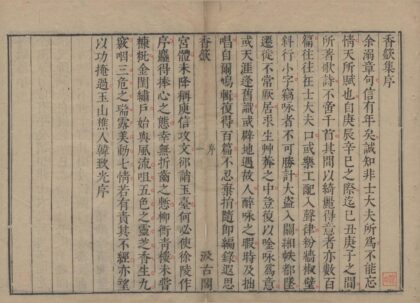 香奩集序
余溺章句信有年矣誠知非士大夫所為不能忘
情天所賦也自庚辰辛巳之際迄己丑庚子之間
所著歌詩不啻千首其間以綺麗得意者亦數百
篇往往在士大夫口或樂工配入聲律粉牆椒壁
斜行小字竊詠者不可勝計大盜入關緗帙都墜
遷徙不常厥居求生草莽之中豈復以吟詠為意
或天涯逢舊識或避地遇故人醉詠之暇時及拙
唱自爾鳩輯復得百篇不忍棄捐隨即編錄遐思
香奩 序 汲古閣
宮體未降稱庾信攻文却誚玉臺何必使徐陵作
序麤得捧心之態幸無折齒之慙柳衖青樓未嘗
糠粃金閨繡戶始與風流咀五色之靈芝香生九
竅咽三危之瑞露美動七情若有責其不經亦望
以功掩過玉山樵人韓致光序